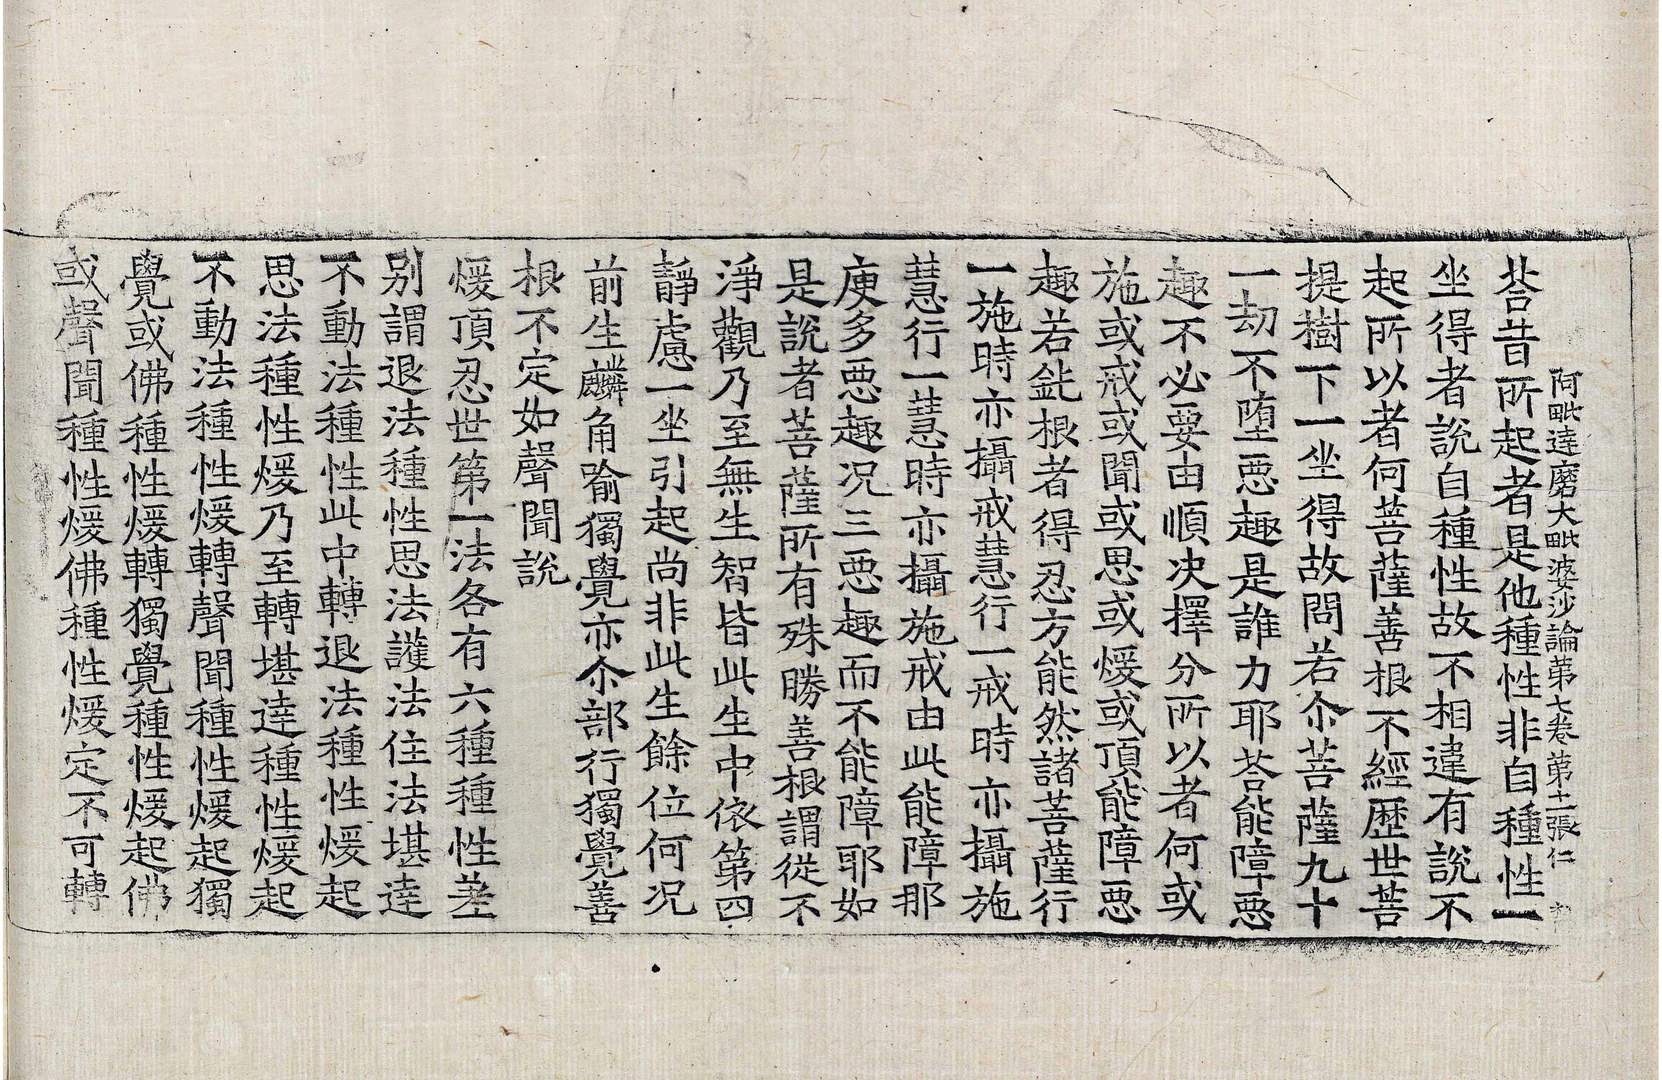 阿毗達磨大毗婆沙論第七卷 第十二張 仁
荅昔所起者是他種性非自種性一
坐得者說自種性故不相違有說不
起所以者何菩薩善根不經歷世菩
提樹下一坐得故問若尒菩薩九十
一劫不墮惡趣是誰力耶荅能障惡
趣不必要由順决擇分所以者何或
施或戒或聞或思或煖或頂能障惡
趣若鈍根者得忍方能然諸菩薩行
一施時亦攝戒慧行一戒時亦攝施
慧行一慧時亦攝施戒由此能障那
庾多惡趣况三惡趣而不能障耶如
是說者菩薩所有殊勝善根謂從不
淨觀乃至無生智皆此生中依第四
靜慮一坐引起尚非此生餘位何况
前生麟角喻獨覺亦尒部行獨覺善
根不定如聲聞說
煖頂忍世第一法各有六種種性差
別謂退法種性思法護法住法堪達
不動法種性此中轉退法種性煖起
思法種性煖乃至轉堪達種性煖起
不動法種性煖轉聲聞種性煖起獨
覺或佛種性煖轉獨覺種性煖起佛
或聲聞種性煖佛種性煖定不可轉